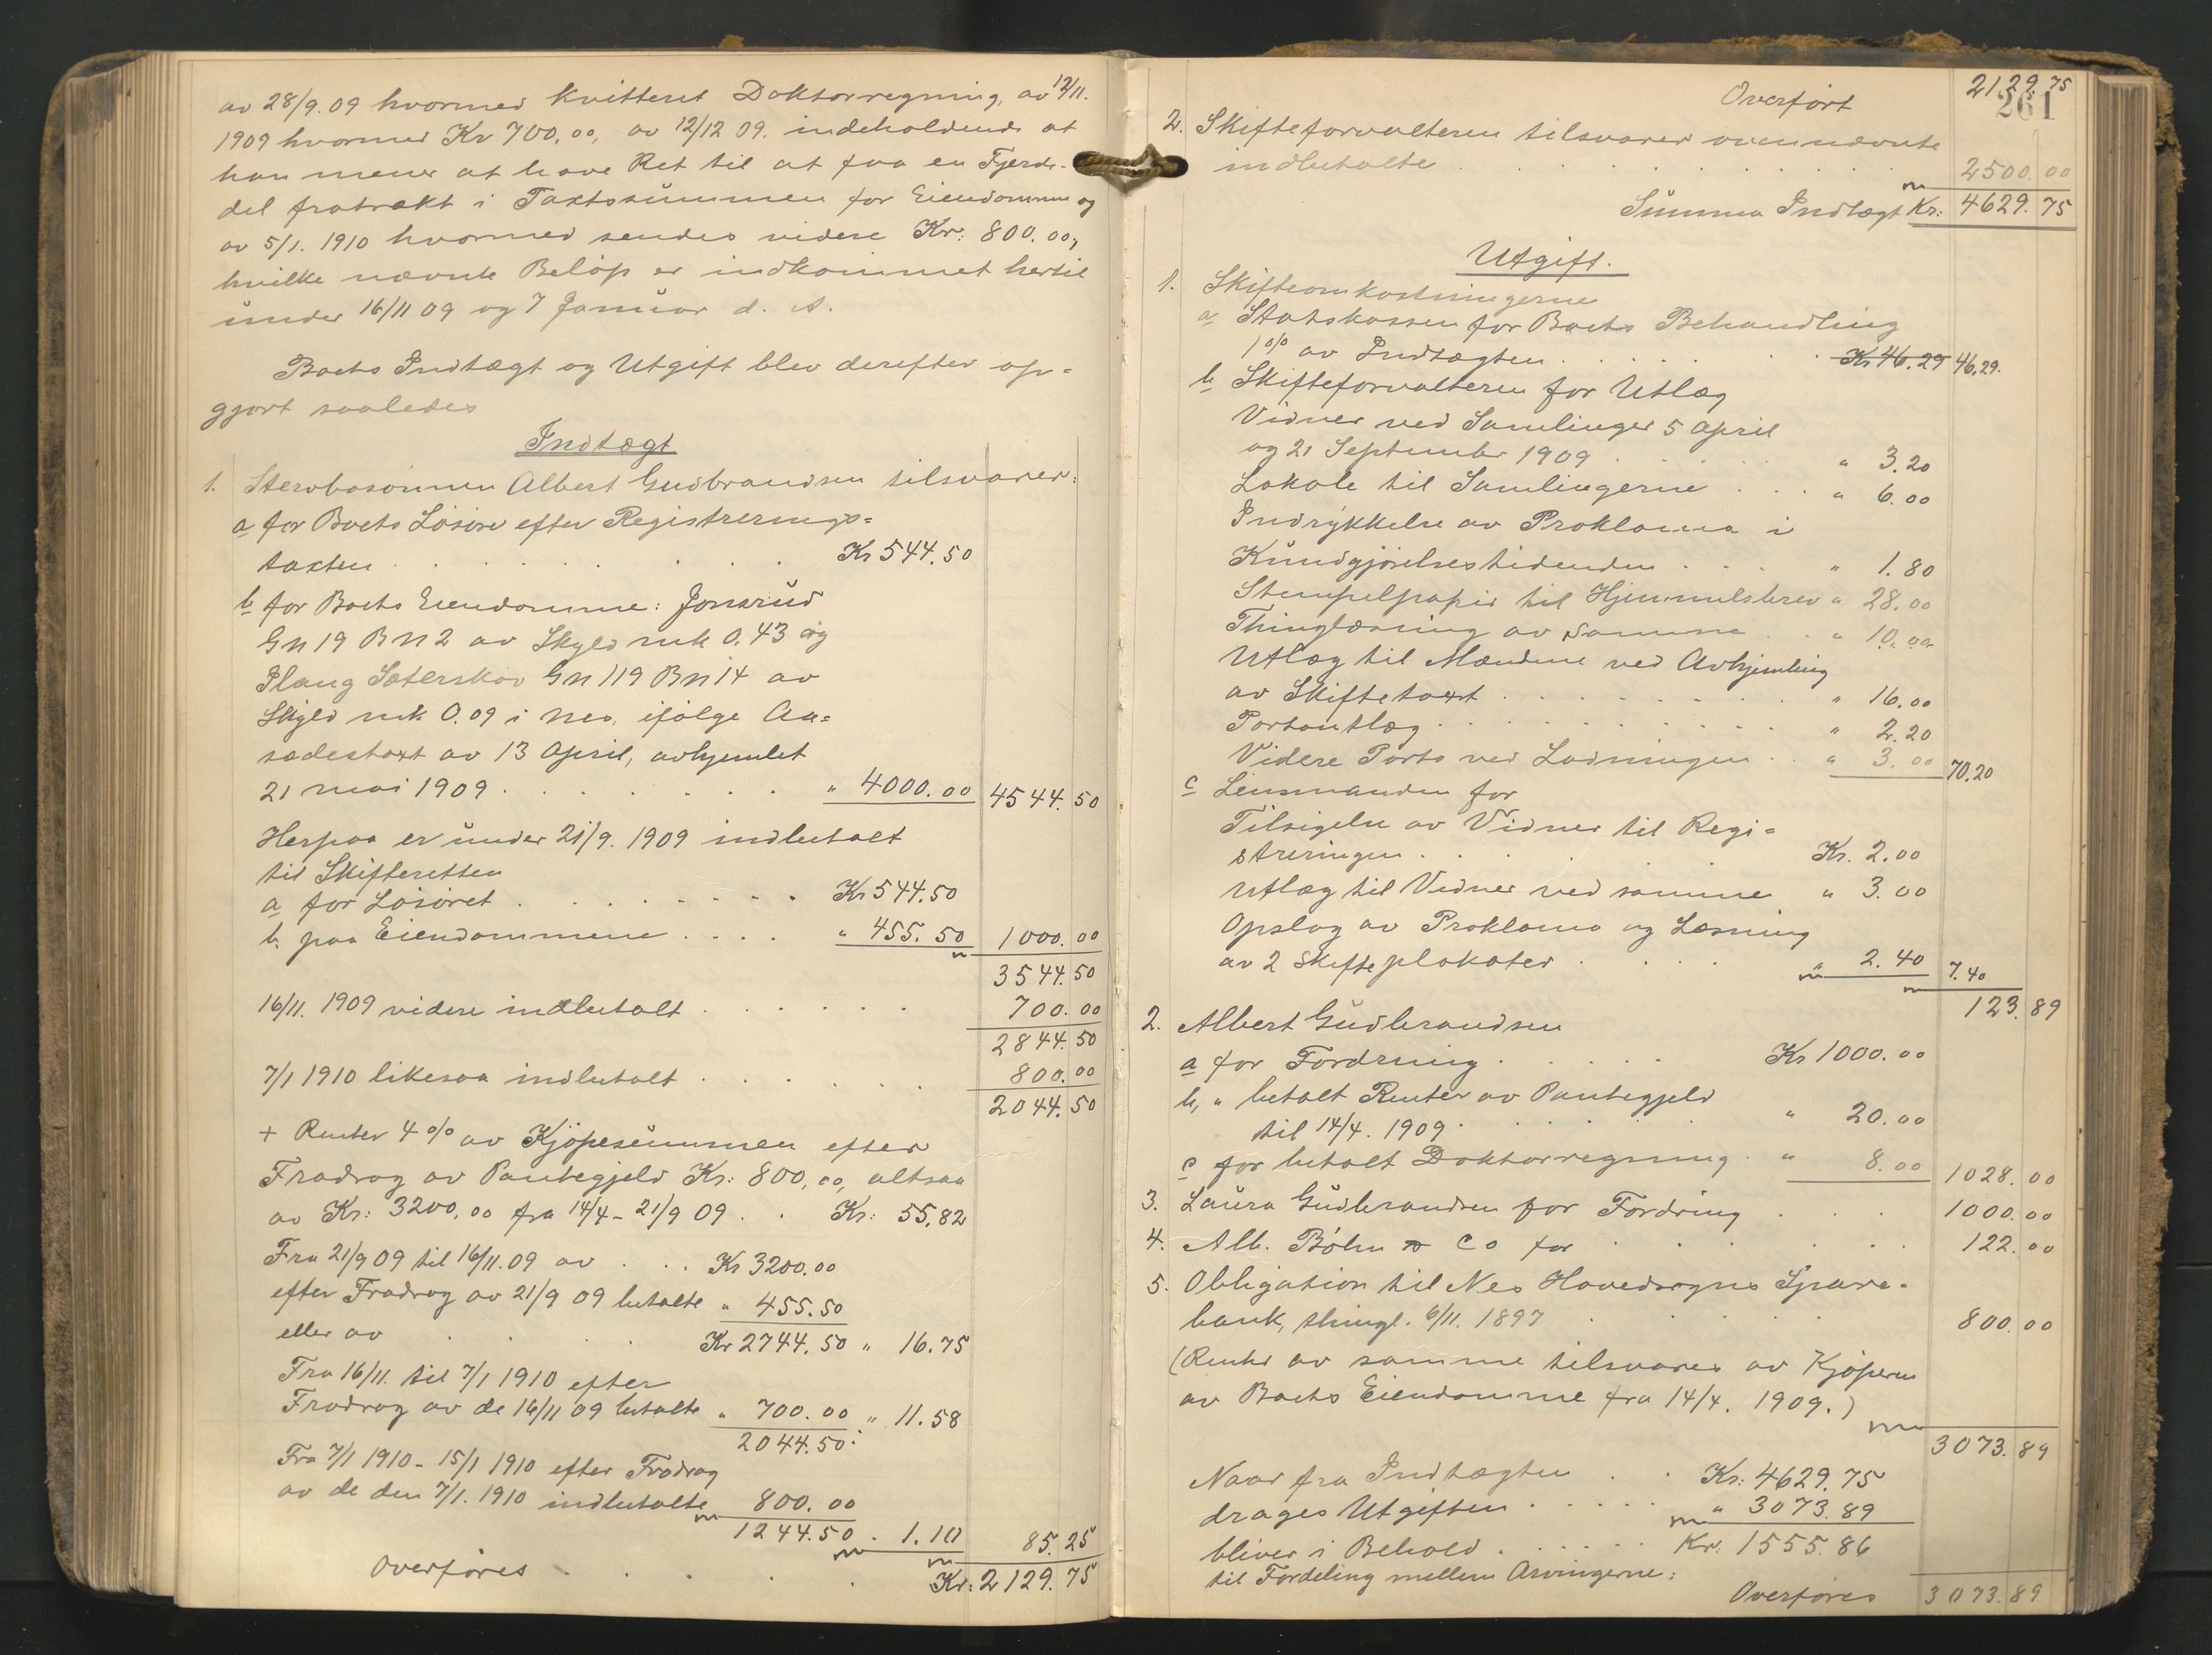 av 28/9.09 hvormed kvitteret Doktorregning, av 12/11.
1909 hvormed Kr 700,00, av 12/12 09. indeholdende at
han mener at have Ret til at faa en Fjerde-
del fratrækt i Taxtsummen for Eiendommen og
av 5/1. 1910 hvormed sendes videre Kr: 800.00,
hvilke nævnte Beløp er indkommet hertil
under 16/11 09 og 7 Januar d. A.
Boets Indtægt og Utgift blev derefter op-
gjort saaledes
Indtægt
1. Stervbosønnen Albert Gudbrandsen tilsvarer:
a for Boets Løsøre efter Registrerings=
taxten . . . . . . Kr 544.50
b for Boets Eiendomme: Jonsrud
Gn 19 Bn 2 av Skyld mk 0.43 og
Plaug Sæterskov Gn 119 Bn 14 av
Skyld mk 0.09 i Nes, ifølge Au=
sædestaxt av 13 April, avhjemlet
21 mai 1909 . . . . . . " 4000.00 4544.50
Herpaa er under 21/9. 1909 indbetalt
til Skifteretten
a for Løsøret . . . . . . . Kr 544.50
b. paa Eiendommene . . . . " 455.50 1000.00
3544.50
16/11. 1909 videre indbetalt . . . . . . 700.00
2844.50
7/1 1910 likesaa indbetalt . . . . . . 800.00
2044.50
+ Renter 4 % av Kjøpesummen efter
Fradrag av Pantegjeld Kr: 800,00, altsaa
av Kr: 3200,00 fra 14/4 - 21/9 09 . . Kr: 55,82
Fra 21/9 09 til 16/11.09 av . . . Kr 3200.00
efter Fradrag av 21/9 09 betalte " 455.50
eller av . . . Kr 2744.50 " 16.75
Fra 16/11. til 7/1 1910 efter
Fradrag av de 16/11 09 betalte " 700.00 " 11.58
2044.50
Fra 7/1 1910 - 15/1 1910 efter Fradrag
av de den 7/1. 1910 indbetalte 800.00
1244.50 . 1.10 85.25
Overføres . . . . . Kr: 2129.75
Overført 2129.75
261
2. Skifteforvalteren tilsvarer ovennævnte
indbetalte . . . . . . . 2500.00
Summa Indtægt Kr: 4629.75
Utgift.
1. Skifteomkostningerne
a Statskassen for Boets Behandling
1 % av Indtægten . . . . . . Kr 46.29 46,29.
b Skifteforvalteren for Utlæg
Vidner ved Samlinger 5 April
og 21 September 1909 . . . . " 3.20
Lokale til Samlingerne . . . " 6.00
Indrykkelse av Proklama i
Kundgjørelsestidenden . . . " 1.80
Stempelpapir til Hjemmelsbrev " 28.00
Thinglæsning av Samme . . " 10.00
Utlæg til Mændene ved Avhjemling
av Skiftetaxt . . . . . . . " 16.00
Portoutlæg . . . . . . . . " 2.20
Videre Porto ved Lodningen . . " 3.00 70.20
c Lensmanden for
Tilsigelse av Vidner til Regi=
streringen . . . . . Kr. 2.00
Utlæg til Vidner ved samme " 3.00
Opslag av Proklama og Læsning
av 2 Skifteplakater . . . . " 2.40 7.40
123.89
2. Albert Gudbrandsen
a for Fordring . . . . . Kr 1000.00
b, " betalt Renter av Pantegjeld
til 14/4. 1909 . . . . . " 20.00
c for betalt Doktorregning . " 8.00 1028.00
3. Laura Gudbrandsen for Fordring . . . 1000.00
4. Alb. Bøhn & Co for . . . . . 122.00
5. Obligation til Nes Hovedsogns Spare-
bank, thingl. 6/11. 1897 . . . . . 800.00
(Renter av samme tilsvares av Kjøperen
av Boets Eiendomme fra 14/4. 1909.)
3073.89
Naar fra Indtægten . . Kr: 4629.75
drages Utgiften . . . . . " 3073.89
bliver i Behold . . . . . Kr. 1555.86
til Fordeling mellem Arvingerne:
Overføres 3073.89